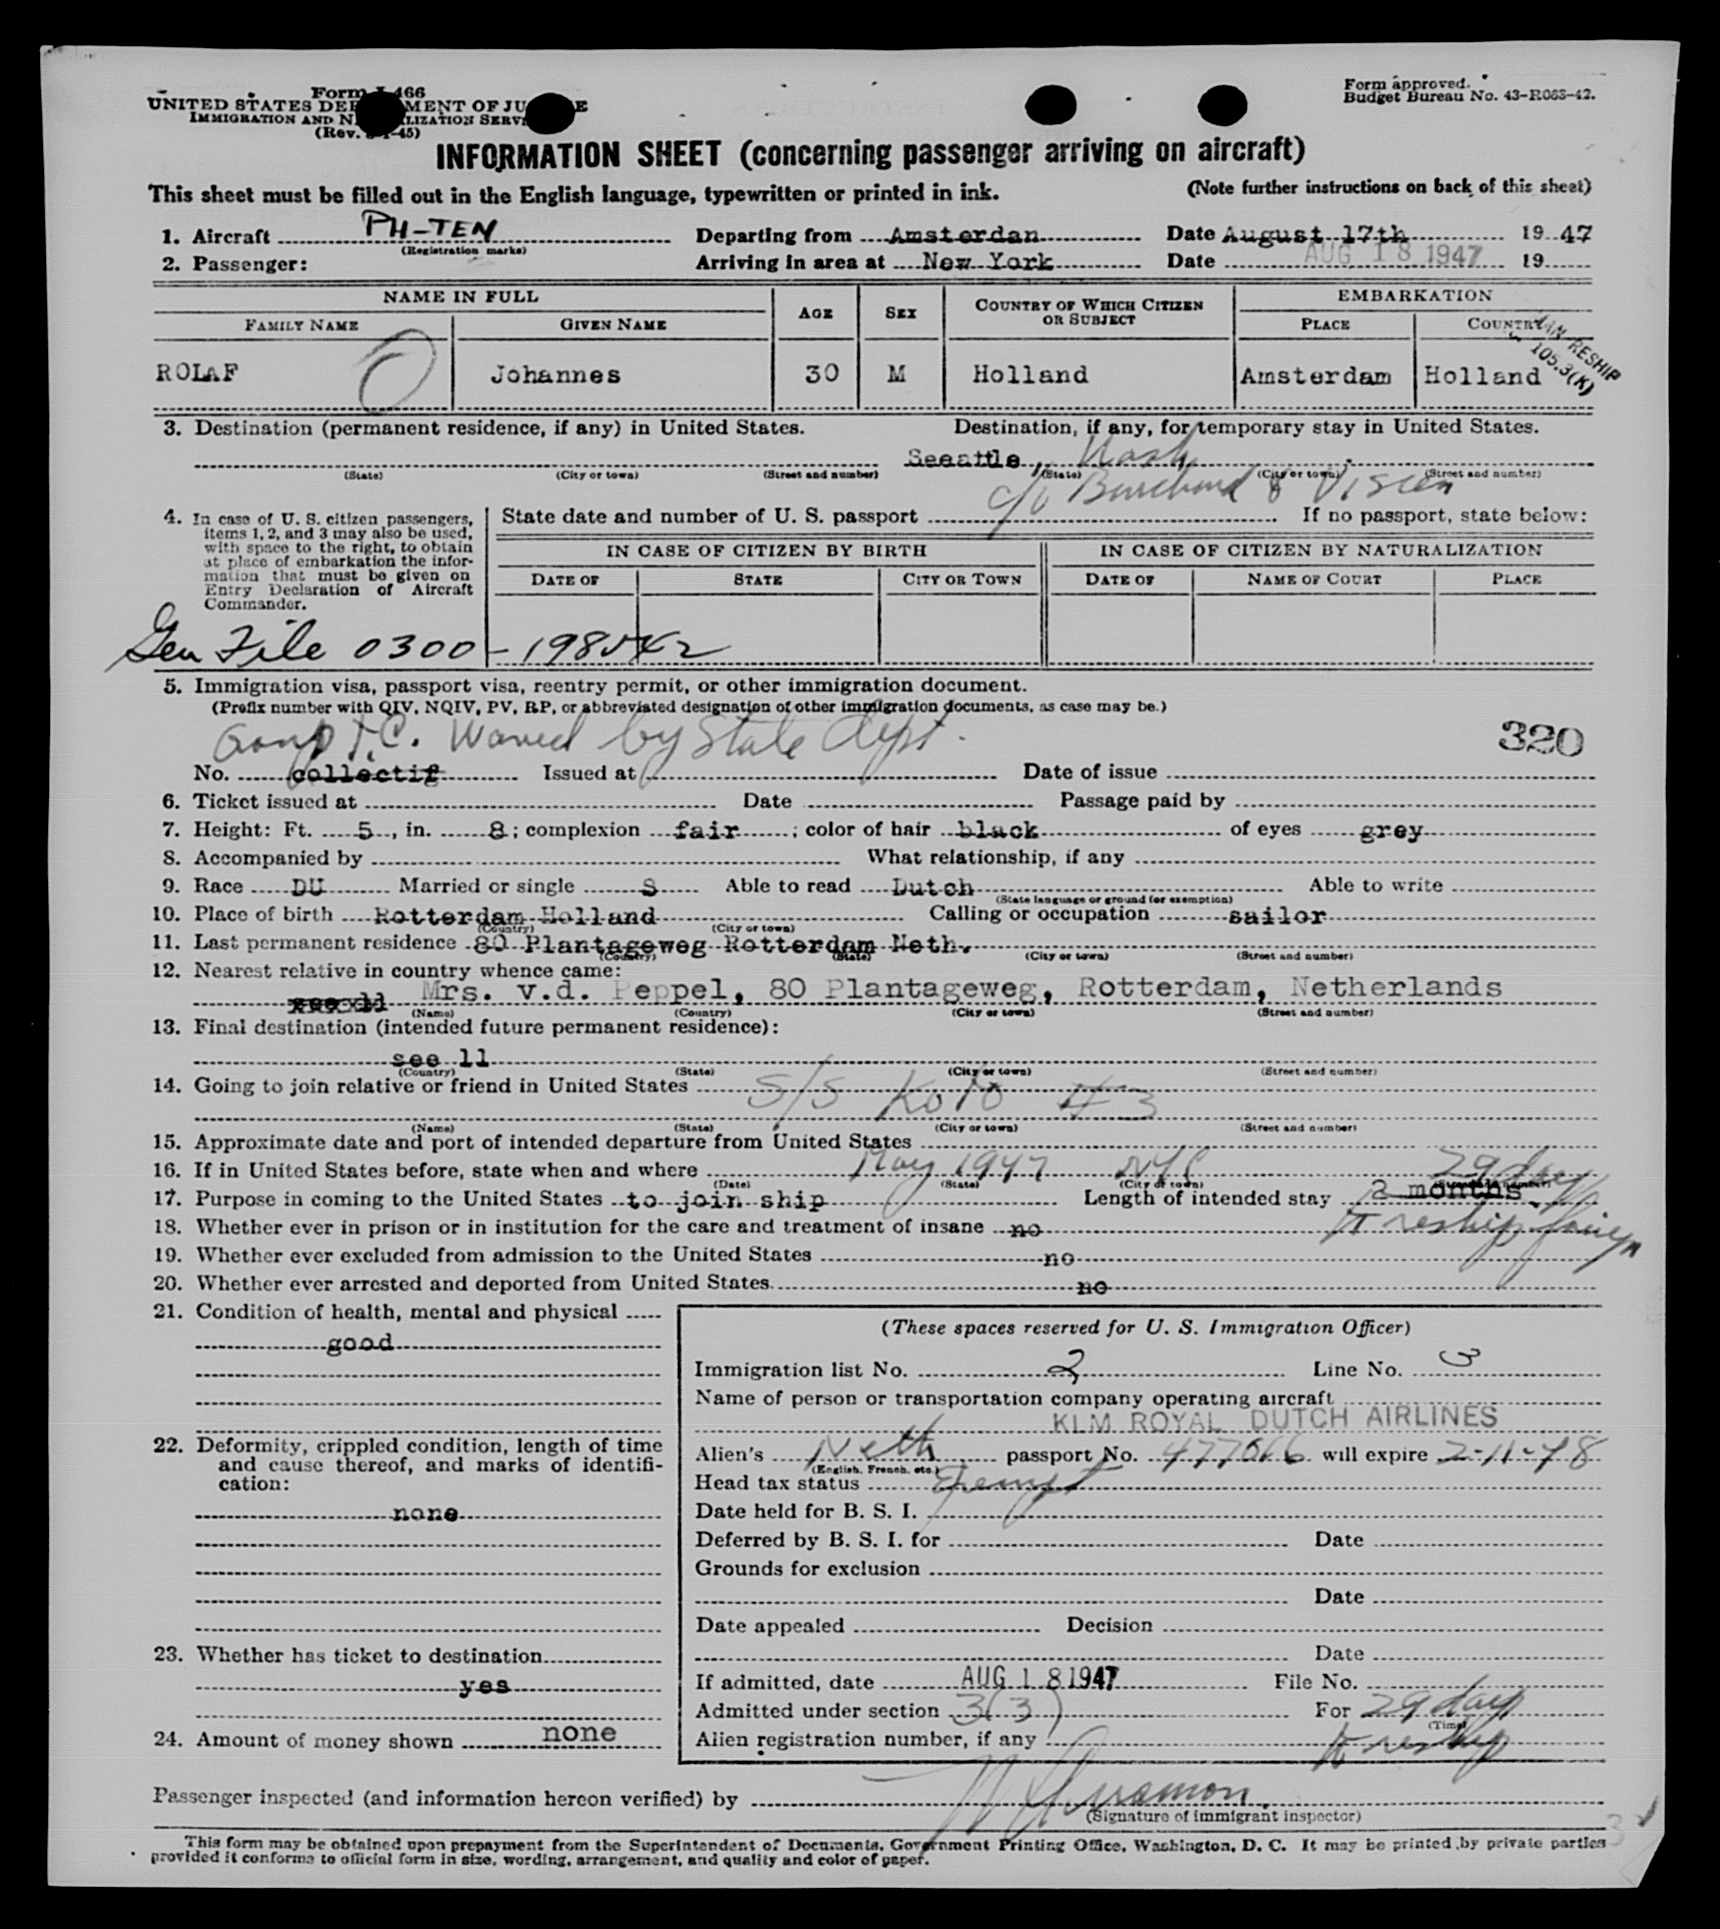 Form I-466
UNITED STATES DEPARTMENT OF JUSTICE
IMMIGRATION AND NATURALIZATION SERVICE
(Rev. -45)
Form approved.
Budget Bureau No. 43-R063-42.
INFORMATION SHEET (concerning passenger arriving on aircraft)
This sheet must be filled out in the English language, typewritten or printed in ink. (Note further instructions on back of this sheet)
1. Aircraft PH-TEN Departing from Amsterdam Date August 17th 1947
(Registration marks)
2. Passenger: Arriving in area at New York Date AUG 18 1947 19
NAME IN FULL AGE SEX COUNTRY OF WHICH CITIZEN OR SUBJECT EMBARKATION
FAMILY NAME GIVEN NAME PLACE COUNTRY
RESHIP
105.3(K)
ROLAF Johannes 30 M Holland Amsterdam Holland
3. Destination (permanent residence, if any) in United States. Destination, if any, for temporary stay in United States.
Seeattle, Wash.
(State) (City or town) (Street and number) (State) (City or town) (Street and number)
c/o Burchard &
4. In case of U. S. citizen passengers, items 1, 2, and 3 may also be used, with space to the right, to obtain at place of embarkation the information that must be given on Entry Declaration of Aircraft Commander.
State date and number of U. S. passport If no passport, state below:
IN CASE OF CITIZEN BY BIRTH IN CASE OF CITIZEN BY NATURALIZATION
DATE OF STATE CITY OR TOWN DATE OF NAME OF COURT PLACE
Gen File 0300-198542
5. Immigration visa, passport visa, reentry permit, or other immigration document.
(Prefix number with QIV, NQIV, PV, RP, or abbreviated designation of other immigration documents, as case may be.)
Waived by State Dept.
320
No. collectif Issued at Date of issue
6. Ticket issued at Date Passage paid by
7. Height: Ft. 5, in. 8; complexion fair; color of hair black of eyes grey
8. Accompanied by What relationship, if any
9. Race DU Married or single S Able to read Dutch Able to write
(State language or ground for exemption)
10. Place of birth Rotterdam Holland Calling or occupation sailor
(Country) (City or town)
11. Last permanent residence 80 Plantageweg Rotterdam Neth.
(Country) (State) (City or town) (Street and number)
12. Nearest relative in country whence came:
see 11 Mrs. v.d. Peppel, 80 Plantageweg, Rotterdam, Netherlands
(Name) (Country) (City or town) (Street and number)
13. Final destination (intended future permanent residence):
see 11
(Country) (State) (City or town) (Street and number)
14. Going to join relative or friend in United States S/S Koto #3
(Name) (State) (City or town) (Street and number)
15. Approximate date and port of intended departure from United States
16. If in United States before, state when and where May 1947 NYC 29 days
(Date) (State) (City or town)
17. Purpose in coming to the United States to join ship Length of intended stay 2 months
to reship foreign
18. Whether ever in prison or in institution for the care and treatment of insane no
19. Whether ever excluded from admission to the United States no
20. Whether ever arrested and deported from United States no
21. Condition of health, mental and physical
good
22. Deformity, crippled condition, length of time and cause thereof, and marks of identification:
none
23. Whether has ticket to destination
yes
24. Amount of money shown none
(These spaces reserved for U. S. Immigration Officer)
Immigration list No. 2 Line No. 3
Name of person or transportation company operating aircraft
KLM ROYAL DUTCH AIRLINES
Alien's Neth passport No. 477066 will expire 2-11-48
(English, French, etc.)
Head tax status Exempt
Date held for B. S. I.
Deferred by B. S. I. for Date
Grounds for exclusion
Date
Date appealed Decision
Date
If admitted, date AUG 18 1947 File No.
Admitted under section 3(3) For 29 days
(Time)
Alien registration number, if any to reship
Passenger inspected (and information hereon verified) by
(Signature of immigrant inspector)
This form may be obtained upon prepayment from the Superintendent of Documents, Government Printing Office, Washington, D. C. It may be printed by private parties
provided it conforms to official form in size, wording, arrangement, and quality and color of paper.